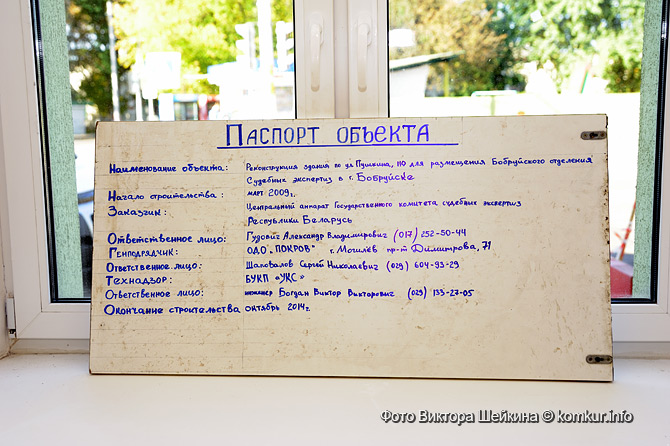 Паспорт объекта
Наименование объекта: Реконструкция здания по ул. Пушкина, 110 для размещения Бобруйского отделения
Судебных экспертиз в г. Бобруйске
Начало строительства: март 2009г.
Заказчик: Центральный аппарат Государственного комитета судебных экспертиз
Республики Беларусь
Ответственное лицо: Гудович Александр Владимирович (017) 252-50-44
Генподрядчик: ОДО "ПОКРОВ" г. Могилёв пр-т Димитрова, 71
Ответственное лицо: Шаповалов Сергей Николаевич (029) 604-93-29
Технадзор: БУКП «УКС»
Ответственное лицо: инженер Богдан Виктор Викторович (029) 133-27-05
Окончание строительства октябрь 2014г.
Фото Виктора Шейкина © komkur.info